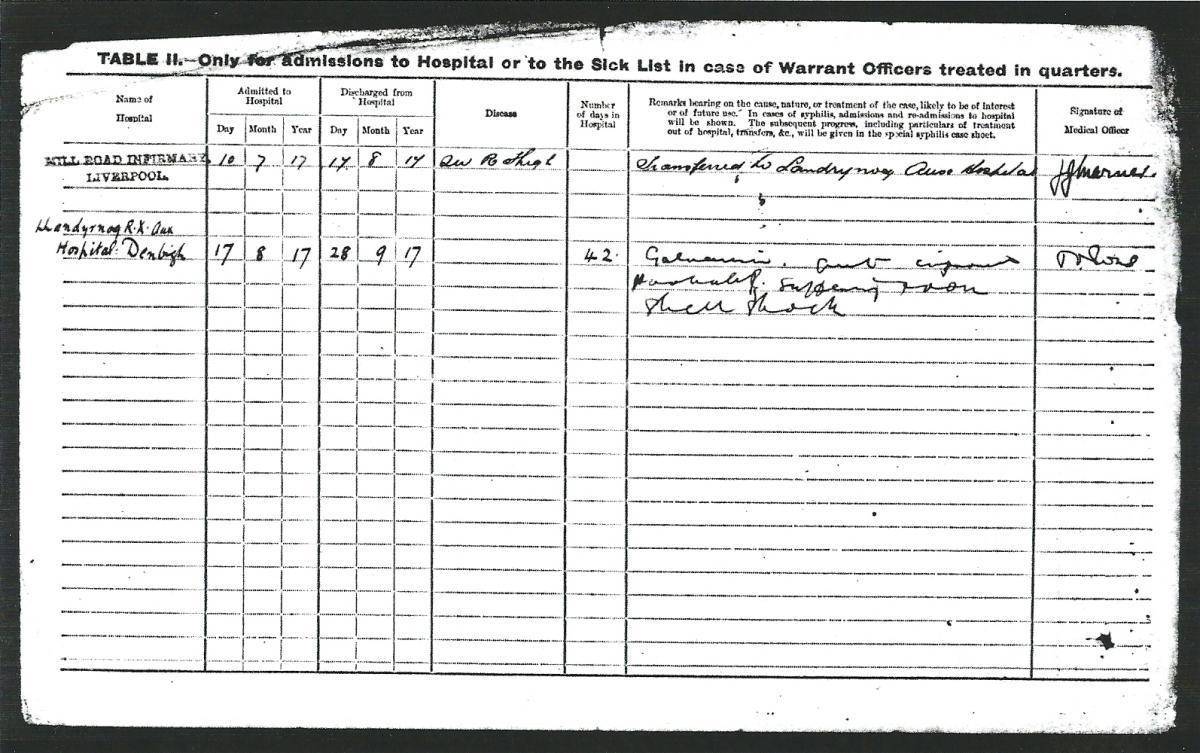 TABLE II.—Only for admissions to Hospital or to the Sick List in case of Warrant Officers treated in quarters.
Name of Hospital
Admitted to Hospital
Discharged from Hospital
Disease
Number of days in Hospital
Remarks bearing on the cause, nature, or treatment of the case, likely to be of interest
or of future use. In cases of syphilis, admissions and re-admissions to hospital
will be shown. The subsequent progress, including particulars of treatment
out of hospital, transfers, &c., will be given in the special syphilis case sheet.
Signature of Medical Officer
Day Month Year Day Month Year
MILL ROAD INFIRMARY, 10 7 17 17 8 17 Thigh Transferred to Hospital
LIVERPOOL.
Hospital Denbigh 17 8 17 28 9 17 42
suffering from
Shell Shock